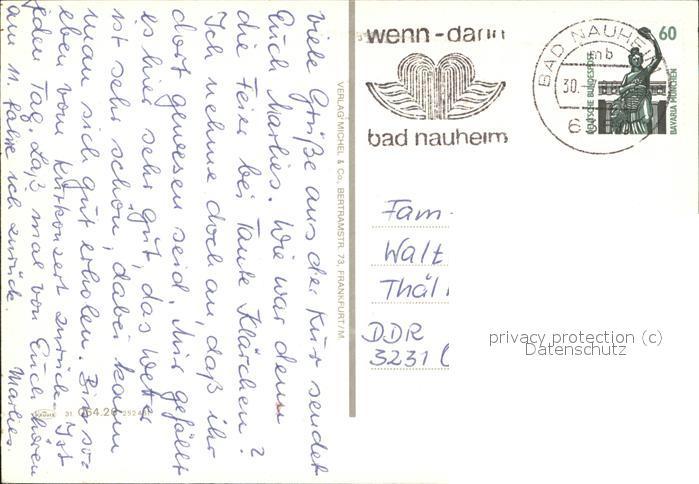 Viele Grüße aus der Kur sendet
Euch Marlies. Wie war denn
die Feier bei Tante Klärchen?
Ich nehme doch an, daß ihr
dort gewesen seid. Mir gefällt
es hier sehr gut, das Wetter
ist sehr schön, dabei kann
man sich gut erholen. Bin so-
eben vom Kurkonzert zurück. Ist
jeden Tag. Laßt mal von Euch hören
am 11. fahre ich zurück.
Marlies.
VERLAG MICHEL & Co., BERTRAMSTR. 73, FRANKFURT/M.
31 064.26
wenn-dann
bad nauheim
BAD NAUHEI
mb
30.
6
60
DEUTSCHE BUNDESPOST
BAVARIA MÜNCHEN
Fam.
Walt
Thäl
DDR
3231
privacy protection (c)
Datenschutz